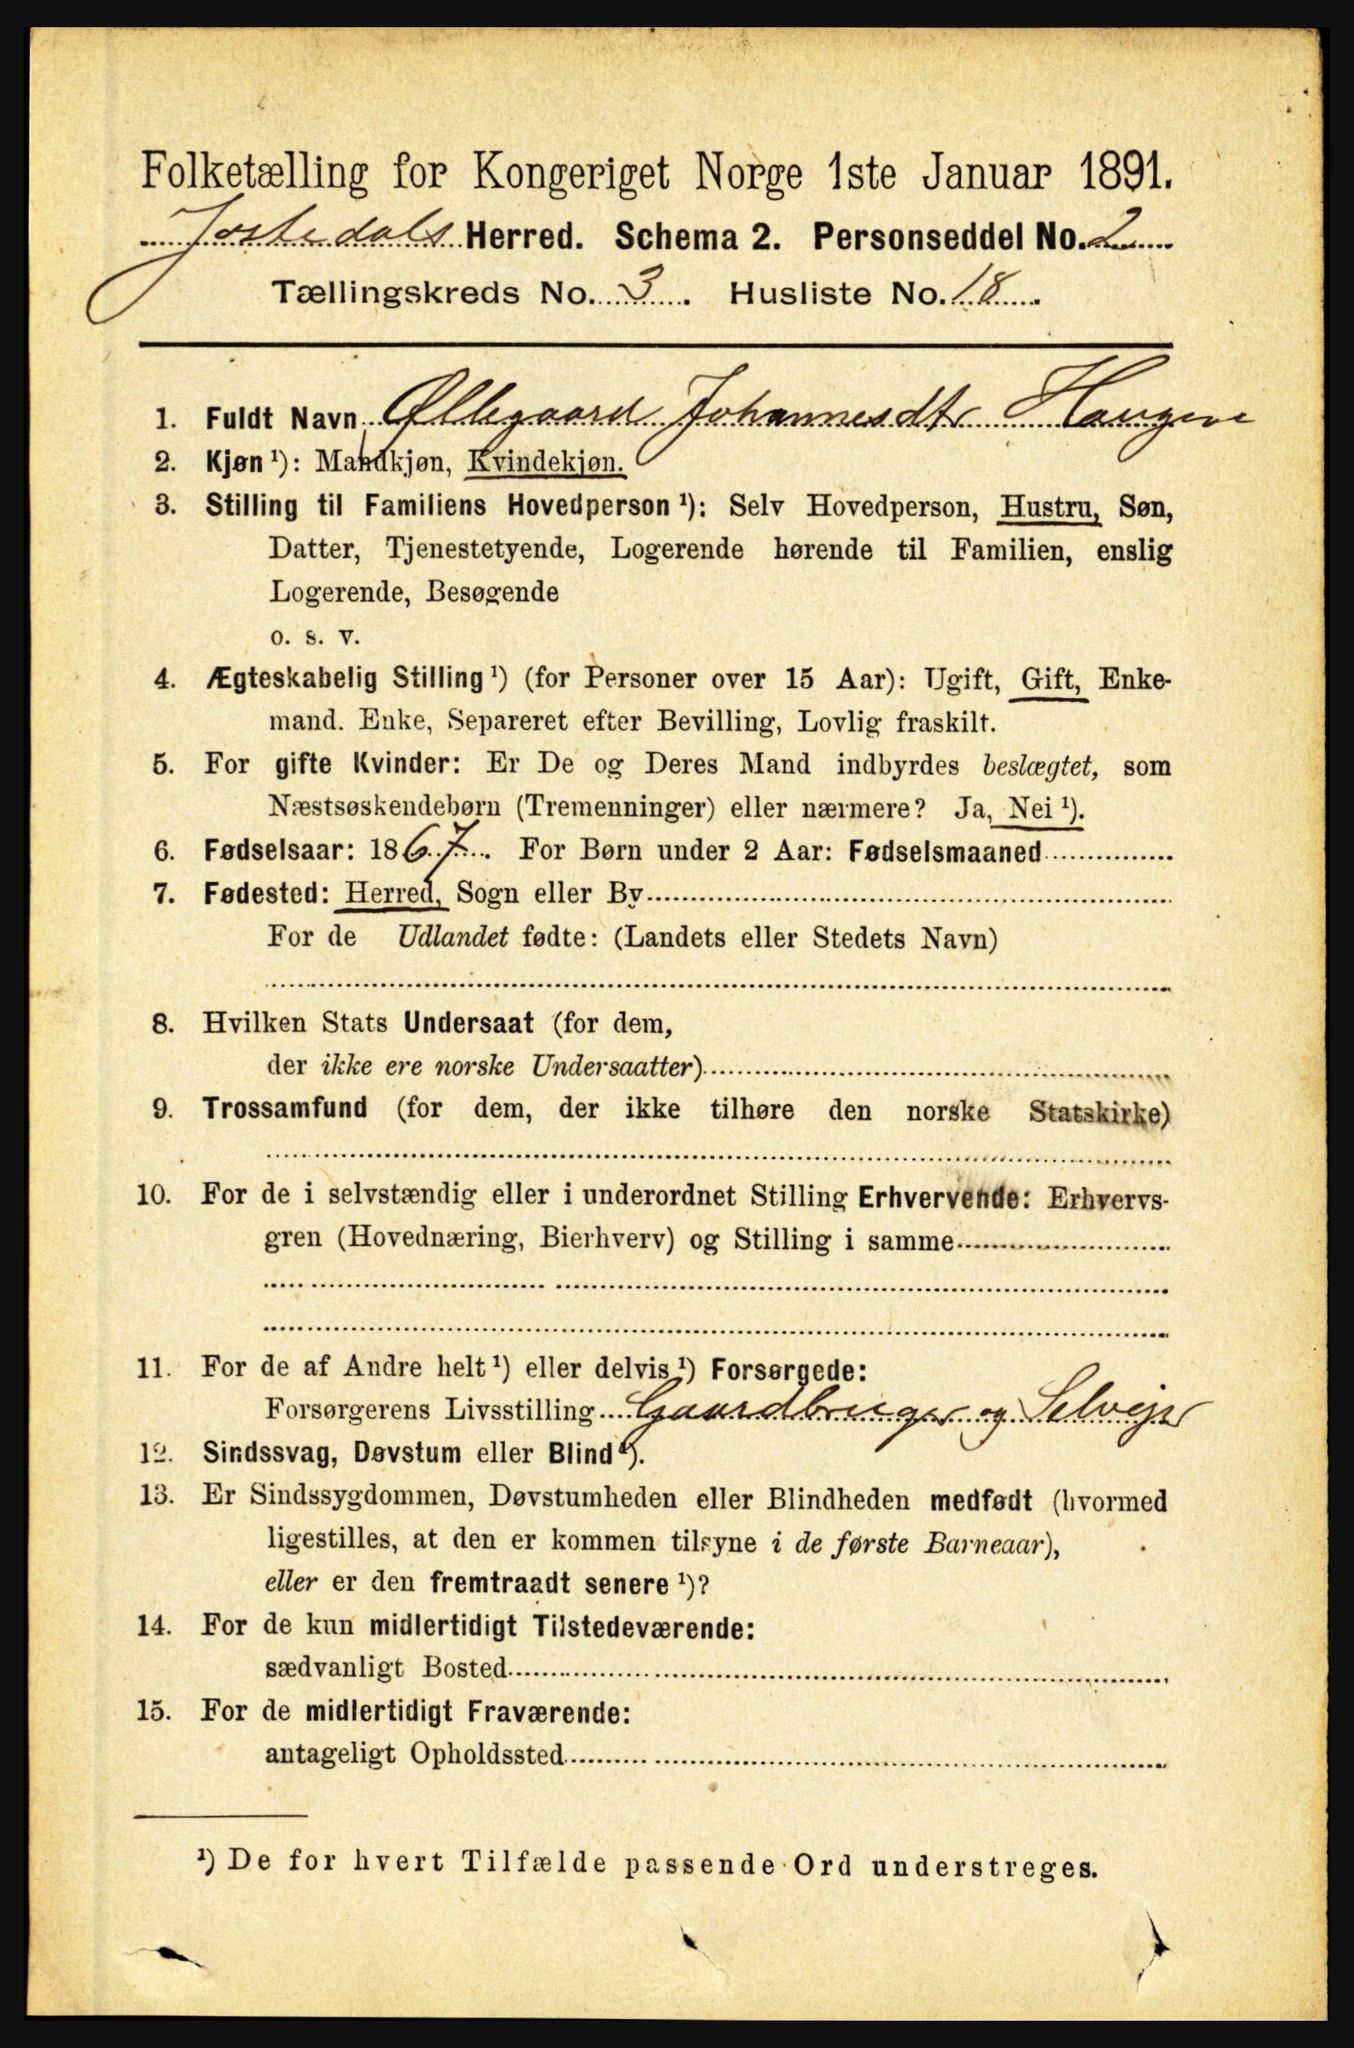 Folketælling for Kongeriget Norge 1ste Januar 1891.
Jostedals Herred. Schema 2. Personseddel No. 2
Tællingskreds No. 3. Husliste No. 18.
1. Fuldt Navn Øllegaard Johannesdtr Haugene
2. Kjøn ¹): Mandkjøn, Kvindekjøn.
3. Stilling til Familiens Hovedperson ¹): Selv Hovedperson, Hustru, Søn,
Datter, Tjenestetyende, Logerende hørende til Familien, enslig
Logerende, Besøgende
o. s. v.
4. Ægteskabelig Stilling ¹) (for Personer over 15 Aar): Ugift, Gift, Enke-
mand. Enke, Separeret efter Bevilling, Lovlig fraskilt.
5. For gifte Kvinder: Er De og Deres Mand indbyrdes beslægtet, som
Næstsøskendebørn (Tremenninger) eller nærmere? Ja, Nei ¹).
6. Fødselsaar: 1867. For Børn under 2 Aar: Fødselsmaaned
7. Fødested: Herred, Sogn eller By
For de Udlandet fødte: (Landets eller Stedets Navn)
8. Hvilken Stats Undersaat (for dem,
der ikke ere norske Undersaatter)
9. Trossamfund (for dem, der ikke tilhøre den norske Statskirke)
10. For de i selvstændig eller i underordnet Stilling Erhvervende: Erhvervs-
gren (Hovednæring, Bierhverv) og Stilling i samme
11. For de af Andre helt ¹) eller delvis ¹) Forsørgede:
Forsørgerens Livsstilling Gaardbruger og Selvejer
12. Sindssvag, Døvstum eller Blind ¹).
13. Er Sindssygdommen, Døvstumheden eller Blindheden medfødt (hvormed
ligestilles, at den er kommen tilsyne i de første Barneaar),
eller er den fremtraadt senere ¹)?
14. For de kun midlertidigt Tilstedeværende:
sædvanligt Bosted
15. For de midlertidigt Fraværende:
antageligt Opholdssted
¹) De for hvert Tilfælde passende Ord understreges.